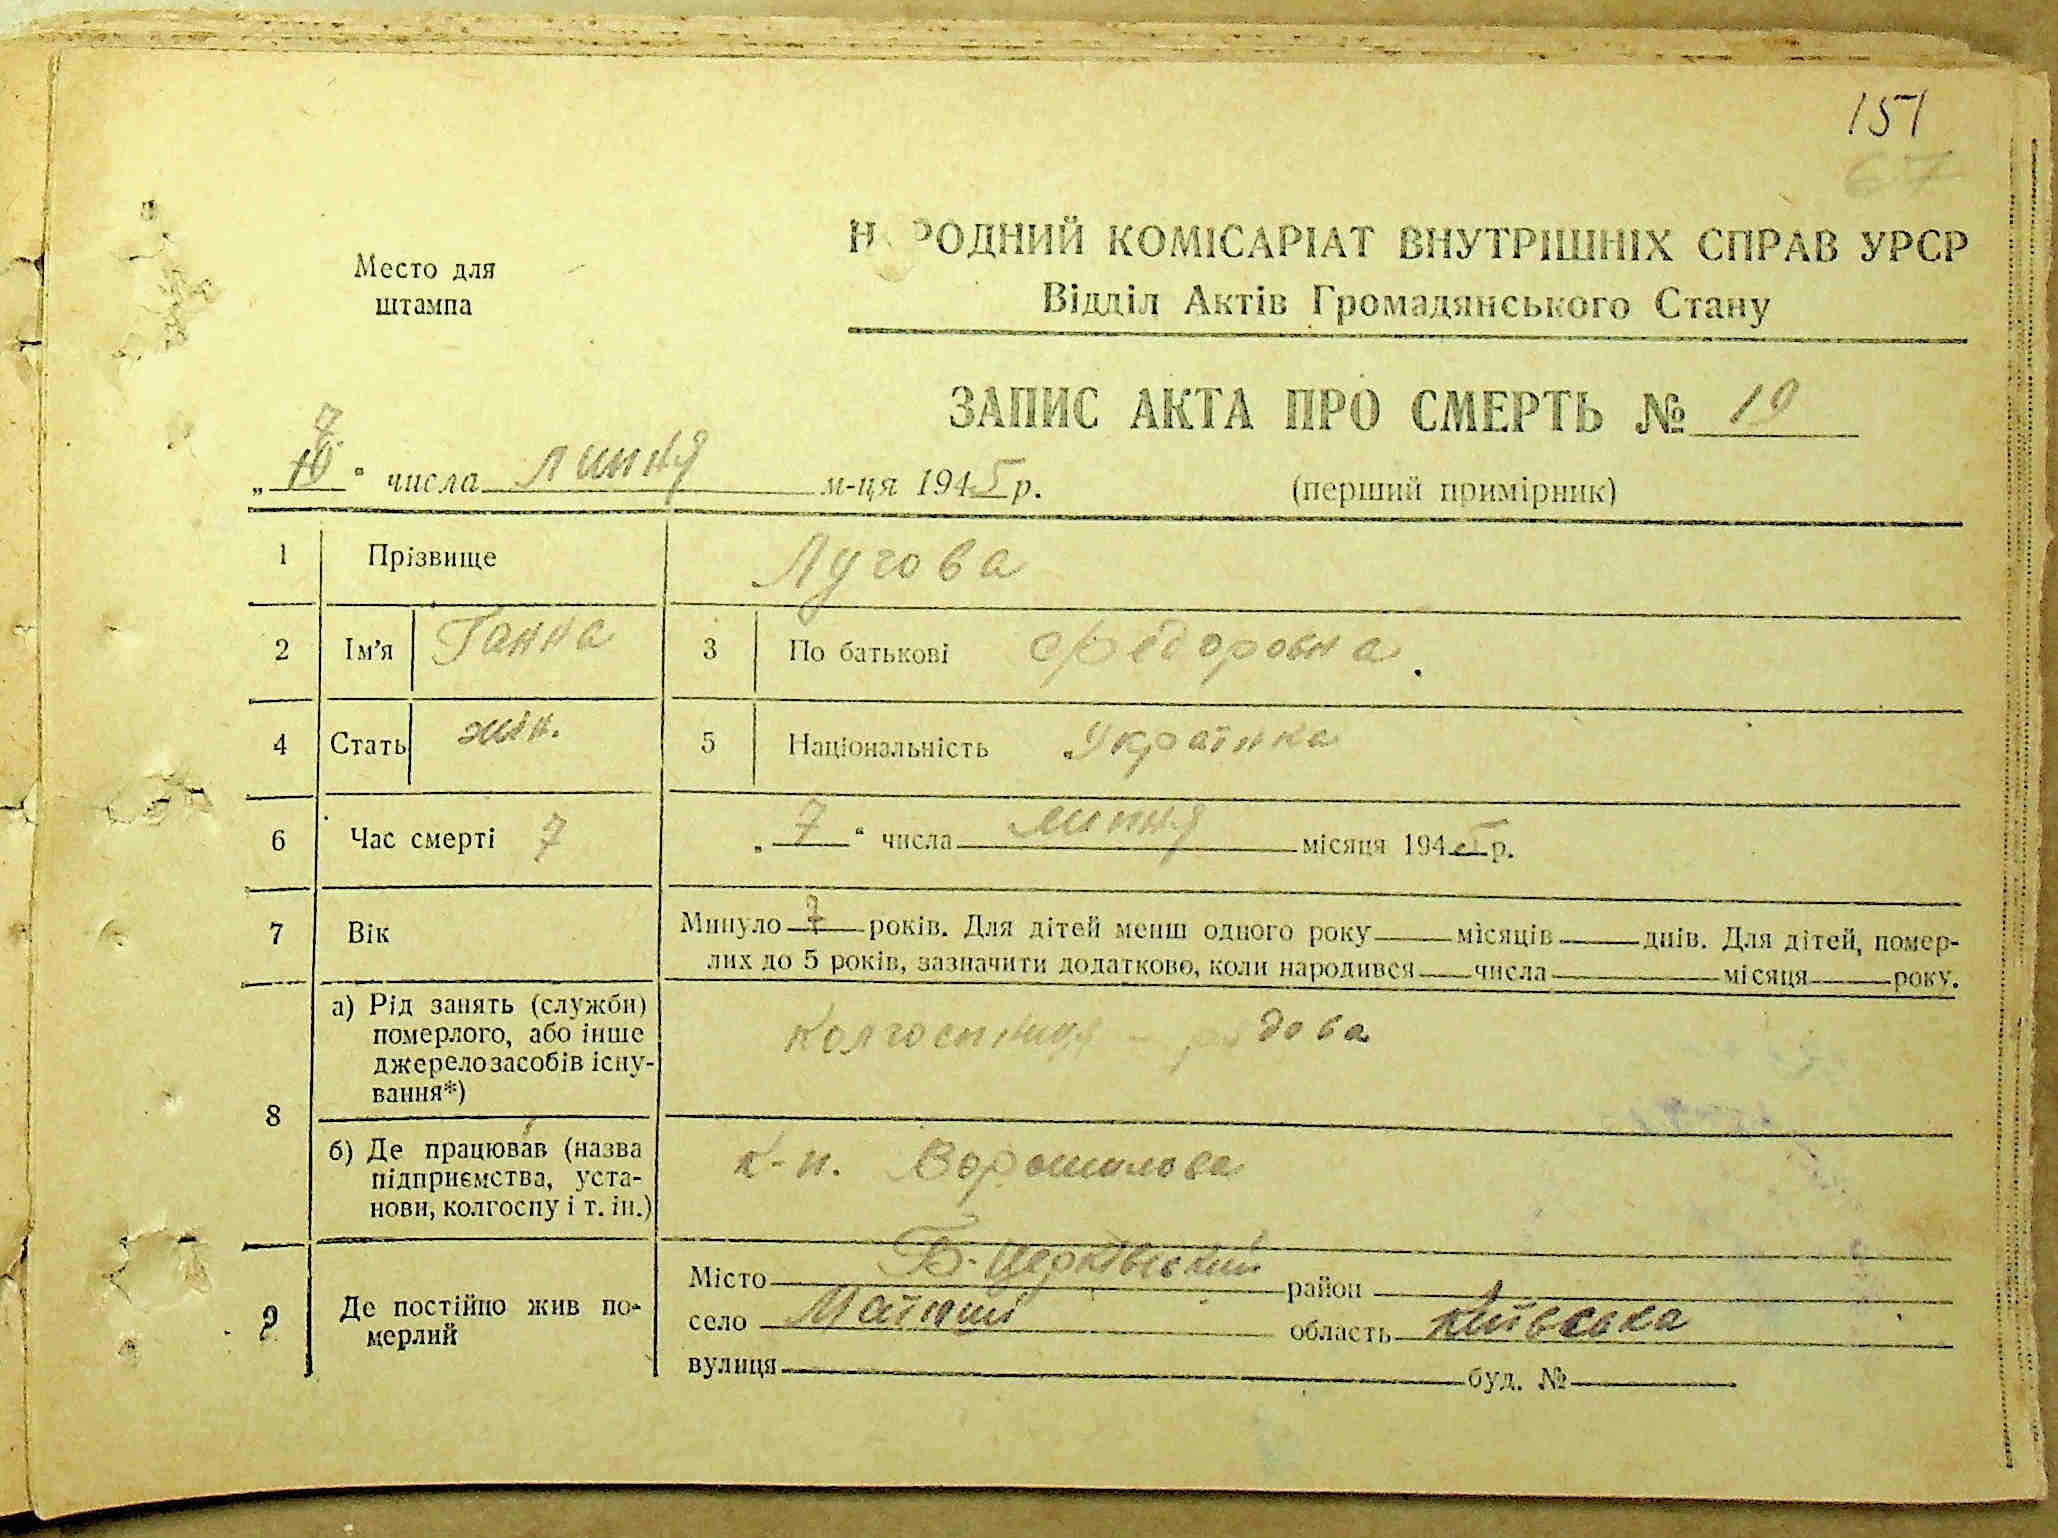 151
67
Место для
штампа
НАРОДНИЙ КОМІСАРІАТ ВНУТРІШНІХ СПРАВ УРСР
Відділ Актів Громадянського Стану
ЗАПИС АКТА ПРО СМЕРТЬ № 19
7
„10“ числа липня м-ця 1945 р.
(перший примірник)
1 Прізвище Лугова
2 Ім’я Ганна 3 По батькові Федоровна
4 Стать жін. 5 Національність Українка
6 Час смерті 7 „7“ числа липня місяця 1945 р.
7 Вік Минуло 7 років. Для дітей менш одного року місяців днів. Для дітей, помер-
лих до 5 років, зазначити додатково, коли народився числа місяця року.
8 а) Рід занять (служби)
померлого, або інше
джерело засобів існу-
вання*)
Колгоспниця - рядова
б) Де працював (назва
підприємства, уста-
нови, колгоспу і т. ін.)
К-п. Ворошилова
9 Де постійно жив по-
мерлий
Місто Б-Церківський район
село Матюші область Київська
вулиця буд. №